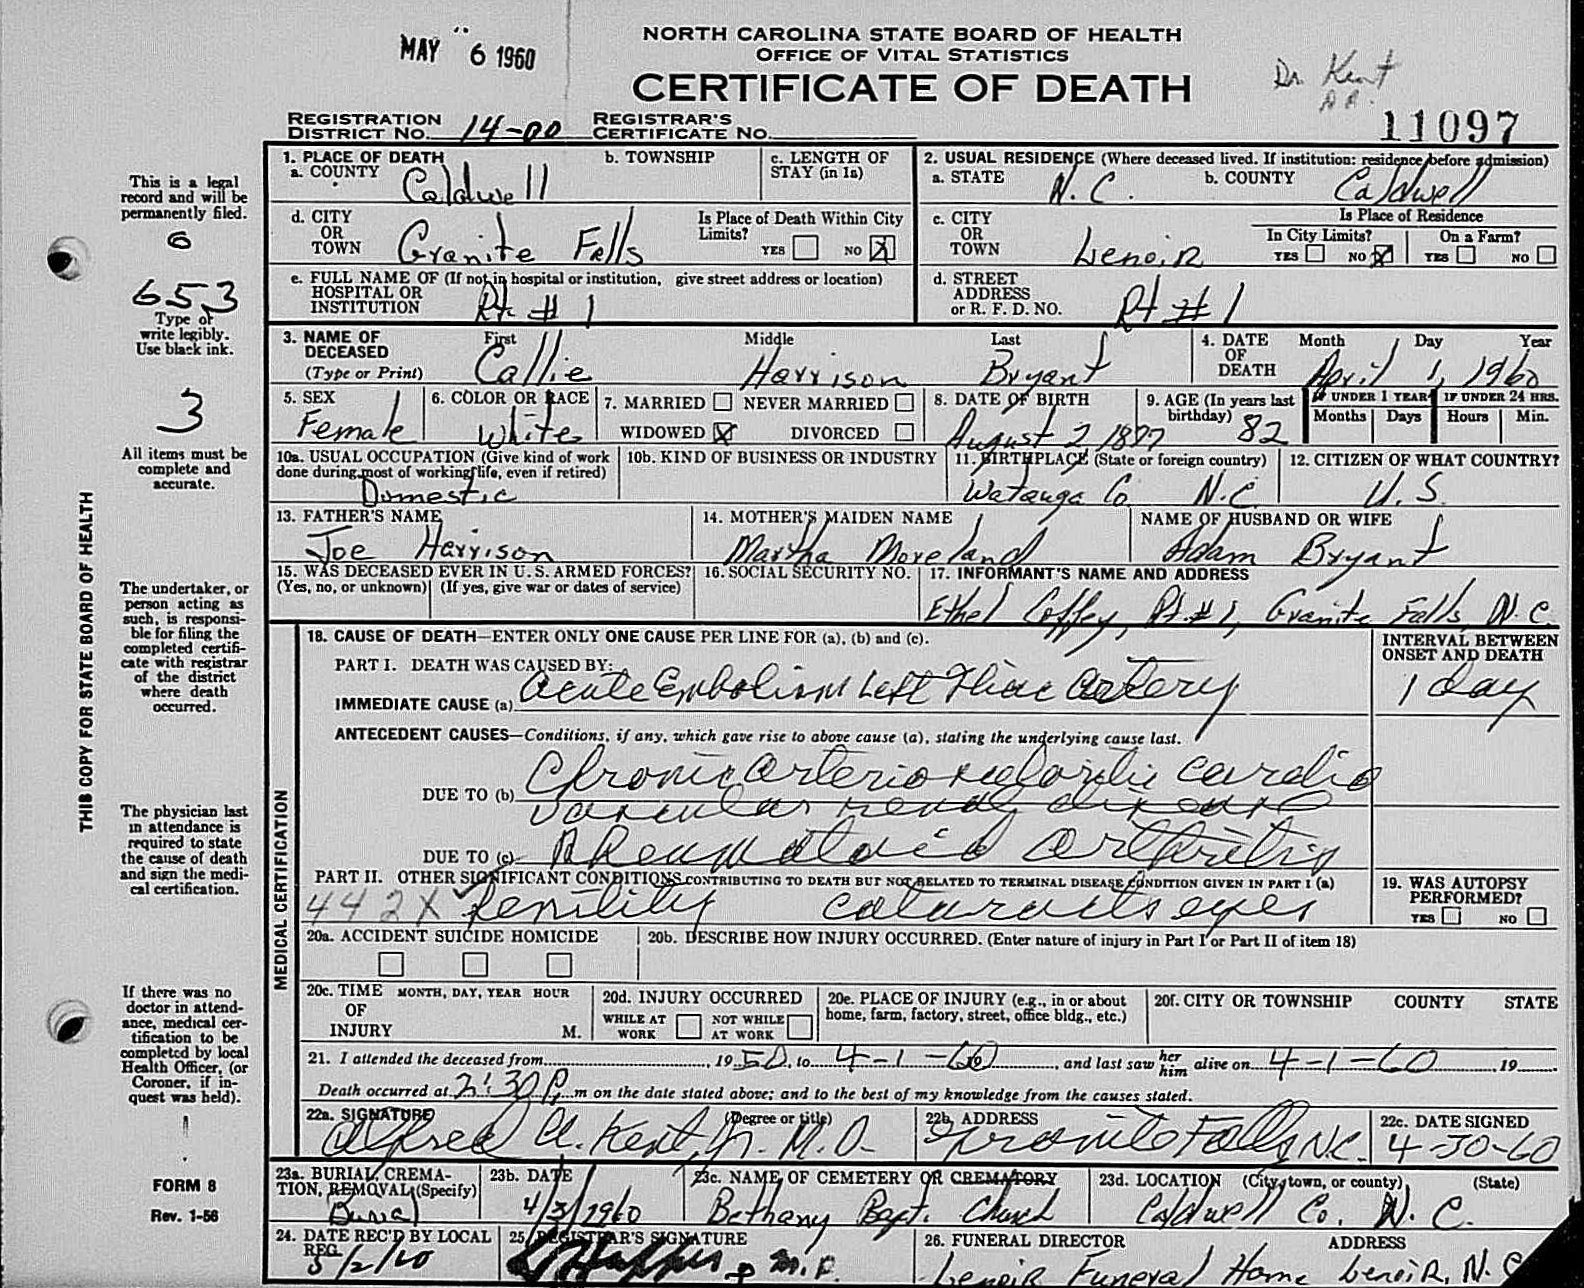 MAY 6 1960
NORTH CAROLINA STATE BOARD OF HEALTH
OFFICE OF VITAL STATISTICS
CERTIFICATE OF DEATH
Dr. Kent
11097
REGISTRATION DISTRICT No. 14-00 REGISTRAR'S CERTIFICATE No.
THIS COPY FOR STATE BOARD OF HEALTH
This is a legal
record and will be
permanently filed.
6
653
Type or
write legibly.
Use black ink.
3
All items must be
complete and
accurate.
The undertaker, or
person acting as
such, is responsi-
ble for filing the
completed certifi-
cate with registrar
of the district
where death
occurred.
The physician last
in attendance is
required to state
the cause of death
and sign the medi-
cal certification.
If there was no
doctor in attend-
ance, medical cer-
tification to be
completed by local
Health Officer, (or
Coroner, if in-
quest was held).
FORM 8
Rev. 1-56
1. PLACE OF DEATH
a. COUNTY Caldwell b. TOWNSHIP c. LENGTH OF STAY (in 1a)
2. USUAL RESIDENCE (Where deceased lived. If institution: residence before admission)
a. STATE N.C. b. COUNTY Caldwell
d. CITY OR TOWN Granite Falls Is Place of Death Within City Limits? YES NO X
c. CITY OR TOWN Lenoir Is Place of Residence In City Limits? YES NO X On a Farm? YES NO
e. FULL NAME OF (If not in hospital or institution, give street address or location) HOSPITAL OR INSTITUTION Rt. # 1
d. STREET ADDRESS or R. F. D. NO. Rt # 1
3. NAME OF DECEASED (Type or Print) First Callie Middle Harrison Last Bryant
4. DATE OF DEATH Month Day Year April 1, 1960
5. SEX Female 6. COLOR OR RACE White 7. MARRIED NEVER MARRIED WIDOWED X DIVORCED
8. DATE OF BIRTH August 2, 1877 9. AGE (In years last birthday) 82 IF UNDER 1 YEAR Months Days IF UNDER 24 HRS. Hours Min.
10a. USUAL OCCUPATION (Give kind of work done during most of working life, even if retired) Domestic
10b. KIND OF BUSINESS OR INDUSTRY
11. BIRTHPLACE (State or foreign country) Watauga Co. N.C.
12. CITIZEN OF WHAT COUNTRY? U.S.
13. FATHER'S NAME Joe Harrison
14. MOTHER'S MAIDEN NAME Martha Moreland
NAME OF HUSBAND OR WIFE Adam Bryant
15. WAS DECEASED EVER IN U. S. ARMED FORCES? (Yes, no, or unknown) (If yes, give war or dates of service)
16. SOCIAL SECURITY NO.
17. INFORMANT'S NAME AND ADDRESS
Ethel Coffey, Rt. # 1, Granite Falls, N.C.
MEDICAL CERTIFICATION
18. CAUSE OF DEATH—ENTER ONLY ONE CAUSE PER LINE FOR (a), (b) and (c).
INTERVAL BETWEEN ONSET AND DEATH
PART I. DEATH WAS CAUSED BY:
IMMEDIATE CAUSE (a) Acute Embolism Left Iliac Artery 1 day
ANTECEDENT CAUSES—Conditions, if any, which gave rise to above cause (a), stating the underlying cause last.
DUE TO (b) Chronic arteriosclerotic cardio
vascular renal disease
DUE TO (c) Rheumatoid arthritis
PART II. OTHER SIGNIFICANT CONDITIONS CONTRIBUTING TO DEATH BUT NOT RELATED TO TERMINAL DISEASE CONDITION GIVEN IN PART I (a)
442X Senility cataracts eyes
19. WAS AUTOPSY PERFORMED? YES NO
20a. ACCIDENT SUICIDE HOMICIDE
20b. DESCRIBE HOW INJURY OCCURRED. (Enter nature of injury in Part I or Part II of item 18)
20c. TIME OF INJURY MONTH, DAY, YEAR HOUR M.
20d. INJURY OCCURRED WHILE AT WORK NOT WHILE AT WORK
20e. PLACE OF INJURY (e.g., in or about home, farm, factory, street, office bldg., etc.)
20f. CITY OR TOWNSHIP COUNTY STATE
21. I attended the deceased from 1950, to 4-1-60, and last saw her him alive on 4-1-60 19
Death occurred at 2:30 P. m on the date stated above; and to the best of my knowledge from the causes stated.
22a. SIGNATURE (Degree or title) Alfred A. Kent, Jr. M.D.
22b. ADDRESS Granite Falls N.C.
22c. DATE SIGNED 4-30-60
23a. BURIAL, CREMATION, REMOVAL (Specify) Burial
23b. DATE 4/3/1960
23c. NAME OF CEMETERY OR CREMATORY Bethany Bapt. Church
23d. LOCATION (City, town, or county) (State) Caldwell Co. N. C.
24. DATE REC'D BY LOCAL REG. 5/2/60
25. REGISTRAR'S SIGNATURE M.D.
26. FUNERAL DIRECTOR ADDRESS
Lenoir Funeral Home Lenoir, N.C.